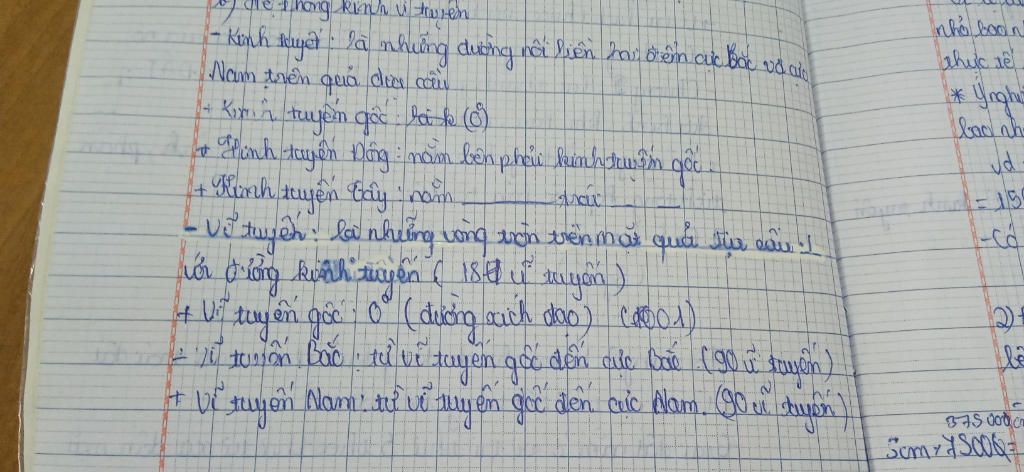 b) Hệ thống kinh vĩ tuyến
- Kinh tuyến: là những đường nối liền hai điểm cực Bắc và cực
Nam trên quả địa cầu
+ Kinh tuyến gốc: (0°)
+ Kinh tuyến Đông: nằm bên phải kinh tuyến gốc.
+ Kinh tuyến Tây: nằm ______ trái __ __
- Vĩ tuyến: là những vòng tròn trên mặt quả địa cầu ⊥
với đường kinh tuyến ( 181 vĩ tuyến)
+ Vĩ tuyến gốc: 0° (đường xích đạo)
+ Vĩ tuyến Bắc: từ vĩ tuyến gốc đến cực bắc (90 vĩ tuyến)
+ Vĩ tuyến Nam: từ vĩ tuyến gốc đến cực Nam. (90 vĩ tuyến)
nhỏ bao n
thực tế
* Ý nghĩ
bao nh
Vd
= 150
- Có
2)
375000
5cm × 75000 =